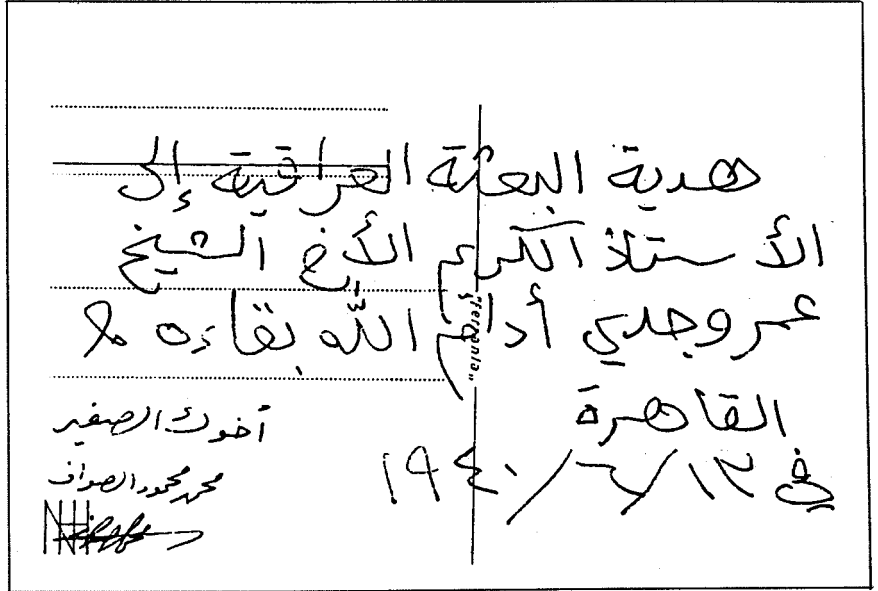 هدية البعثة العراقية إلى
الأستاذ الكريم الأخ الشيخ
عمر وجدي أدام الله بقاءه
القاهرة
في ١٢/٦/١٩٤٠
أخوك الصغير
محمد محمود الصواف
"Ferrania"